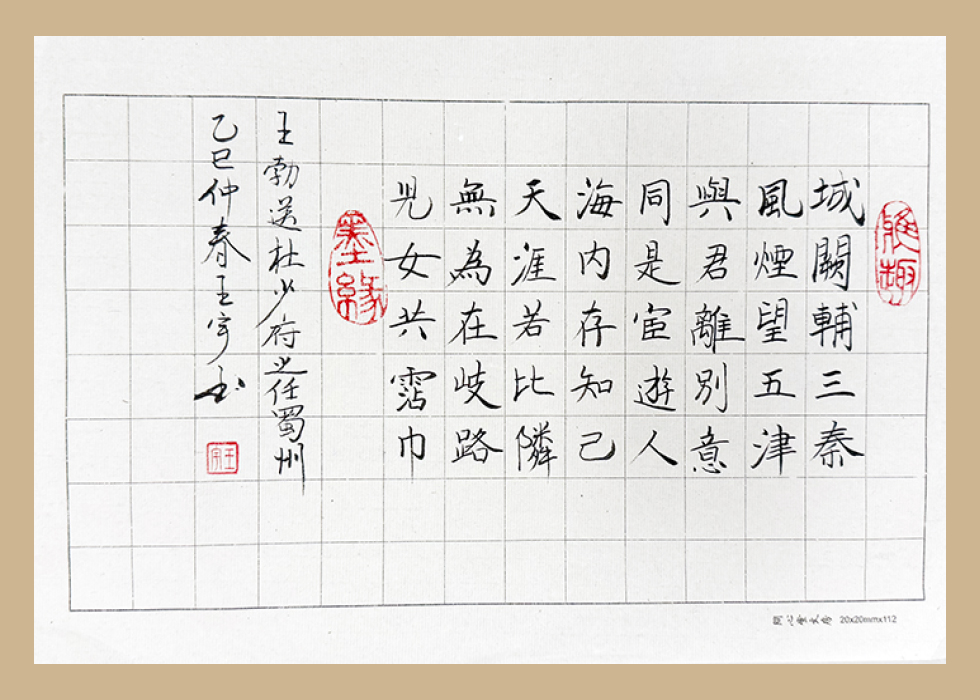 雅趣
城闕輔三秦
風煙望五津
與君離別意
同是宦遊人
海内存知己
天涯若比隣
無為在岐路
児女共霑巾
墨緣
王勃送杜少府之任蜀州
乙巳仲春王宇书
王宇
20x20mmx112